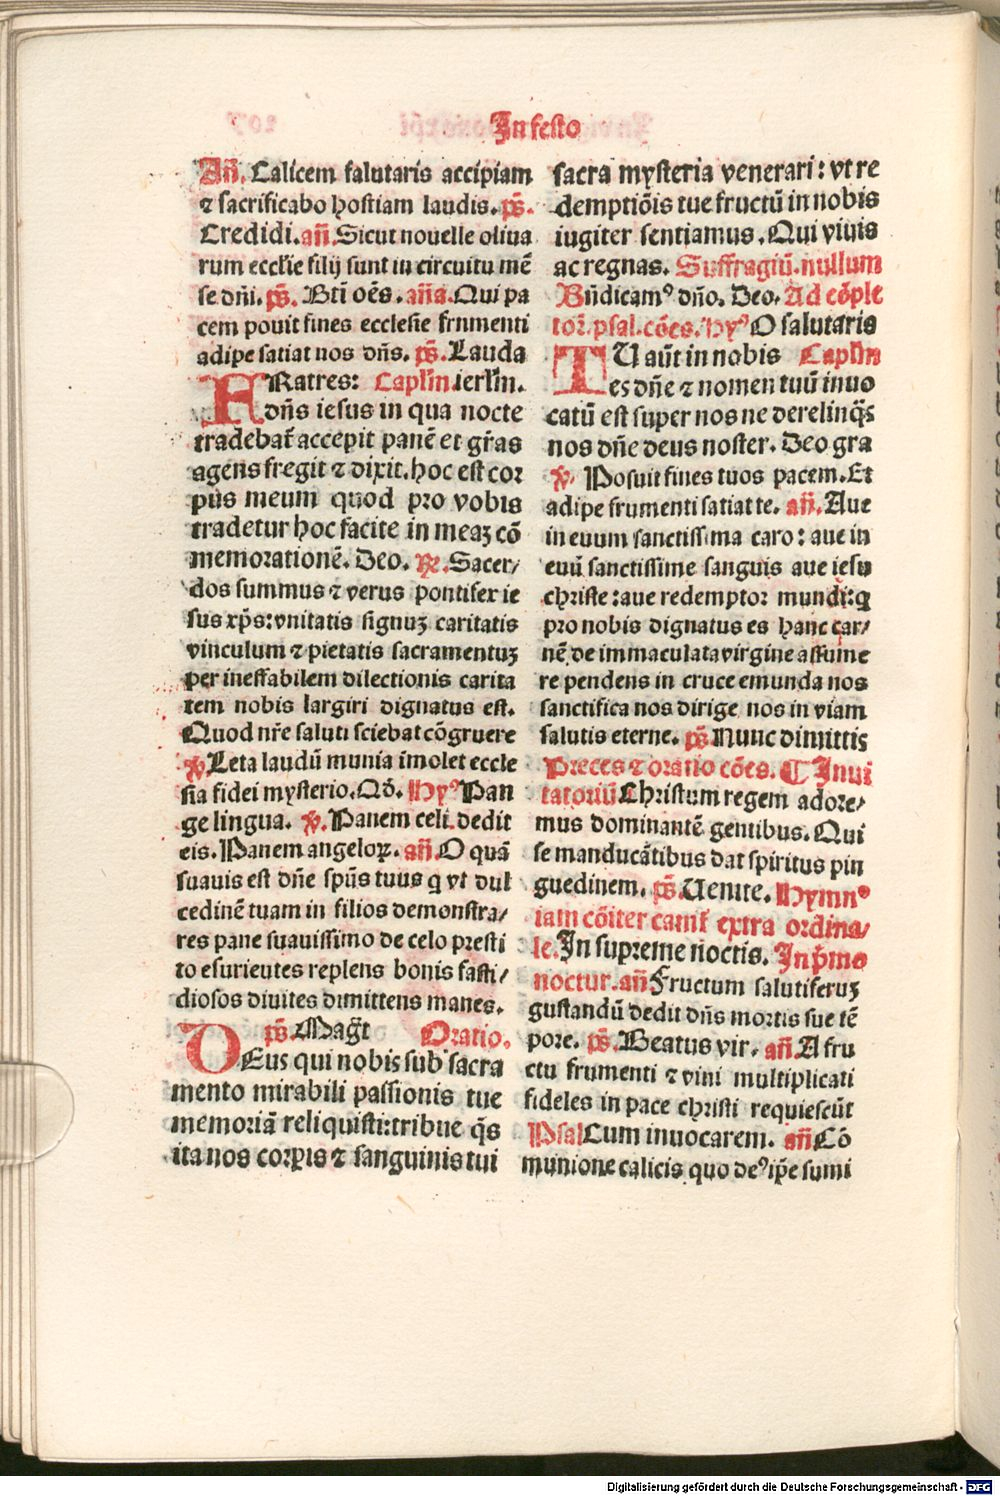 In festo
Añ. Calicem salutaris accipiam
⁊ sacrificabo hostiam laudis. pš.
Credidi. añ. Sicut nouelle oliua
rum eccľie filij sunt in circuitu mē
se dñi. pš. Bti oēs. aña. Qui pa
cem posuit fines ecclesie frumenti
adipe satiat nos dñs. pš. Lauda
FRatres: Caplm. ierlm.
dñs iesus in qua nocte
tradebat̄ accepit panē et gr̄as
agens fregit ⁊ dixit. hoc est cor
pus meum quod pro vobis
tradetur hoc facite in meaꝫ cō
memorationē. Deo. ꝶ. Sacer/
dos summus ⁊ verus pontifex ie
sus xp̄s: vnitatis signuꝫ caritatis
vinculum ⁊ pietatis sacramentuꝫ
per ineffabilem dilectionis carita
tem nobis largiri dignatus est.
Quod nr̄e saluti sciebat cōgruere
℣. Leta laudū munia īmolet eccle
sia fidei mysterio. Qđ. Hyꝰ Pan
ge lingua. ℣. Panem celi dedit
eis. Panem angeloꝝ. añ. O quā
suauis est dñe spūs tuus q vt dul
cedinē tuam in filios demonstra/
res pane suauissimo de celo presti
to esurientes replens bonis fasti/
diosos diuites dimittens inanes.
pš. Mag̃t Oratio.
DEus qui nobis sub sacra
mento mirabili passionis tue
memoriā reliquisti: tribue q̄s
ita nos corꝑis ⁊ sanguinis tui
sacra mysteria venerari: vt re
demptiōis tue fructū in nobis
iugiter sentiamus. Qui viuis
ac regnas. Suffragiū. nullum
Bñdicamꝰ dño. Deo. Ad cōple
toꝛ. psal. cōes. Hyꝰ O salutaris
TU aūt in nobis Caplm
es dñe ⁊ nomen tuū inuo
catū est super nos ne derelinq̄s
nos dñe deus noster. Deo gra
℣. Posuit fines tuos pacem. Et
adipe frumenti satiat te. añ. Aue
in euum sanctissima caro: aue in
euū sanctissime sanguis aue iesu
christe: aue redemptor mundi: q
pro nobis dignatus es hanc car/
nē de immaculata virgine assume
re pendens in cruce emunda nos
sanctifica nos dirige nos in viam
salutis eterne. pš. Nunc dimittis
Preces ⁊ oratio cōes. ¶ Inui
tatoriū Christum regem adore/
mus dominantē gentibus. Qui
se manducātibus dat spiritus pin
guedinem. pš. Uenite. Hymnꝰ
iam cōiter cant̄ extra ordina/
le. In supreme noctis. In p̄mo
noctur. añ Fructum salutiferuꝫ
gustandū dedit dñs mortis sue tē
pore. pš. Beatus vir. añ. A fru
ctu frumenti ⁊ vini multiplicati
fideles in pace christi requiescūt
Psal Cum inuocarem. añ Cō
munione calicis quo deꝰ ip̄e sumi
Digitalisierung gefördert durch die Deutsche Forschungsgemeinschaft - DFG